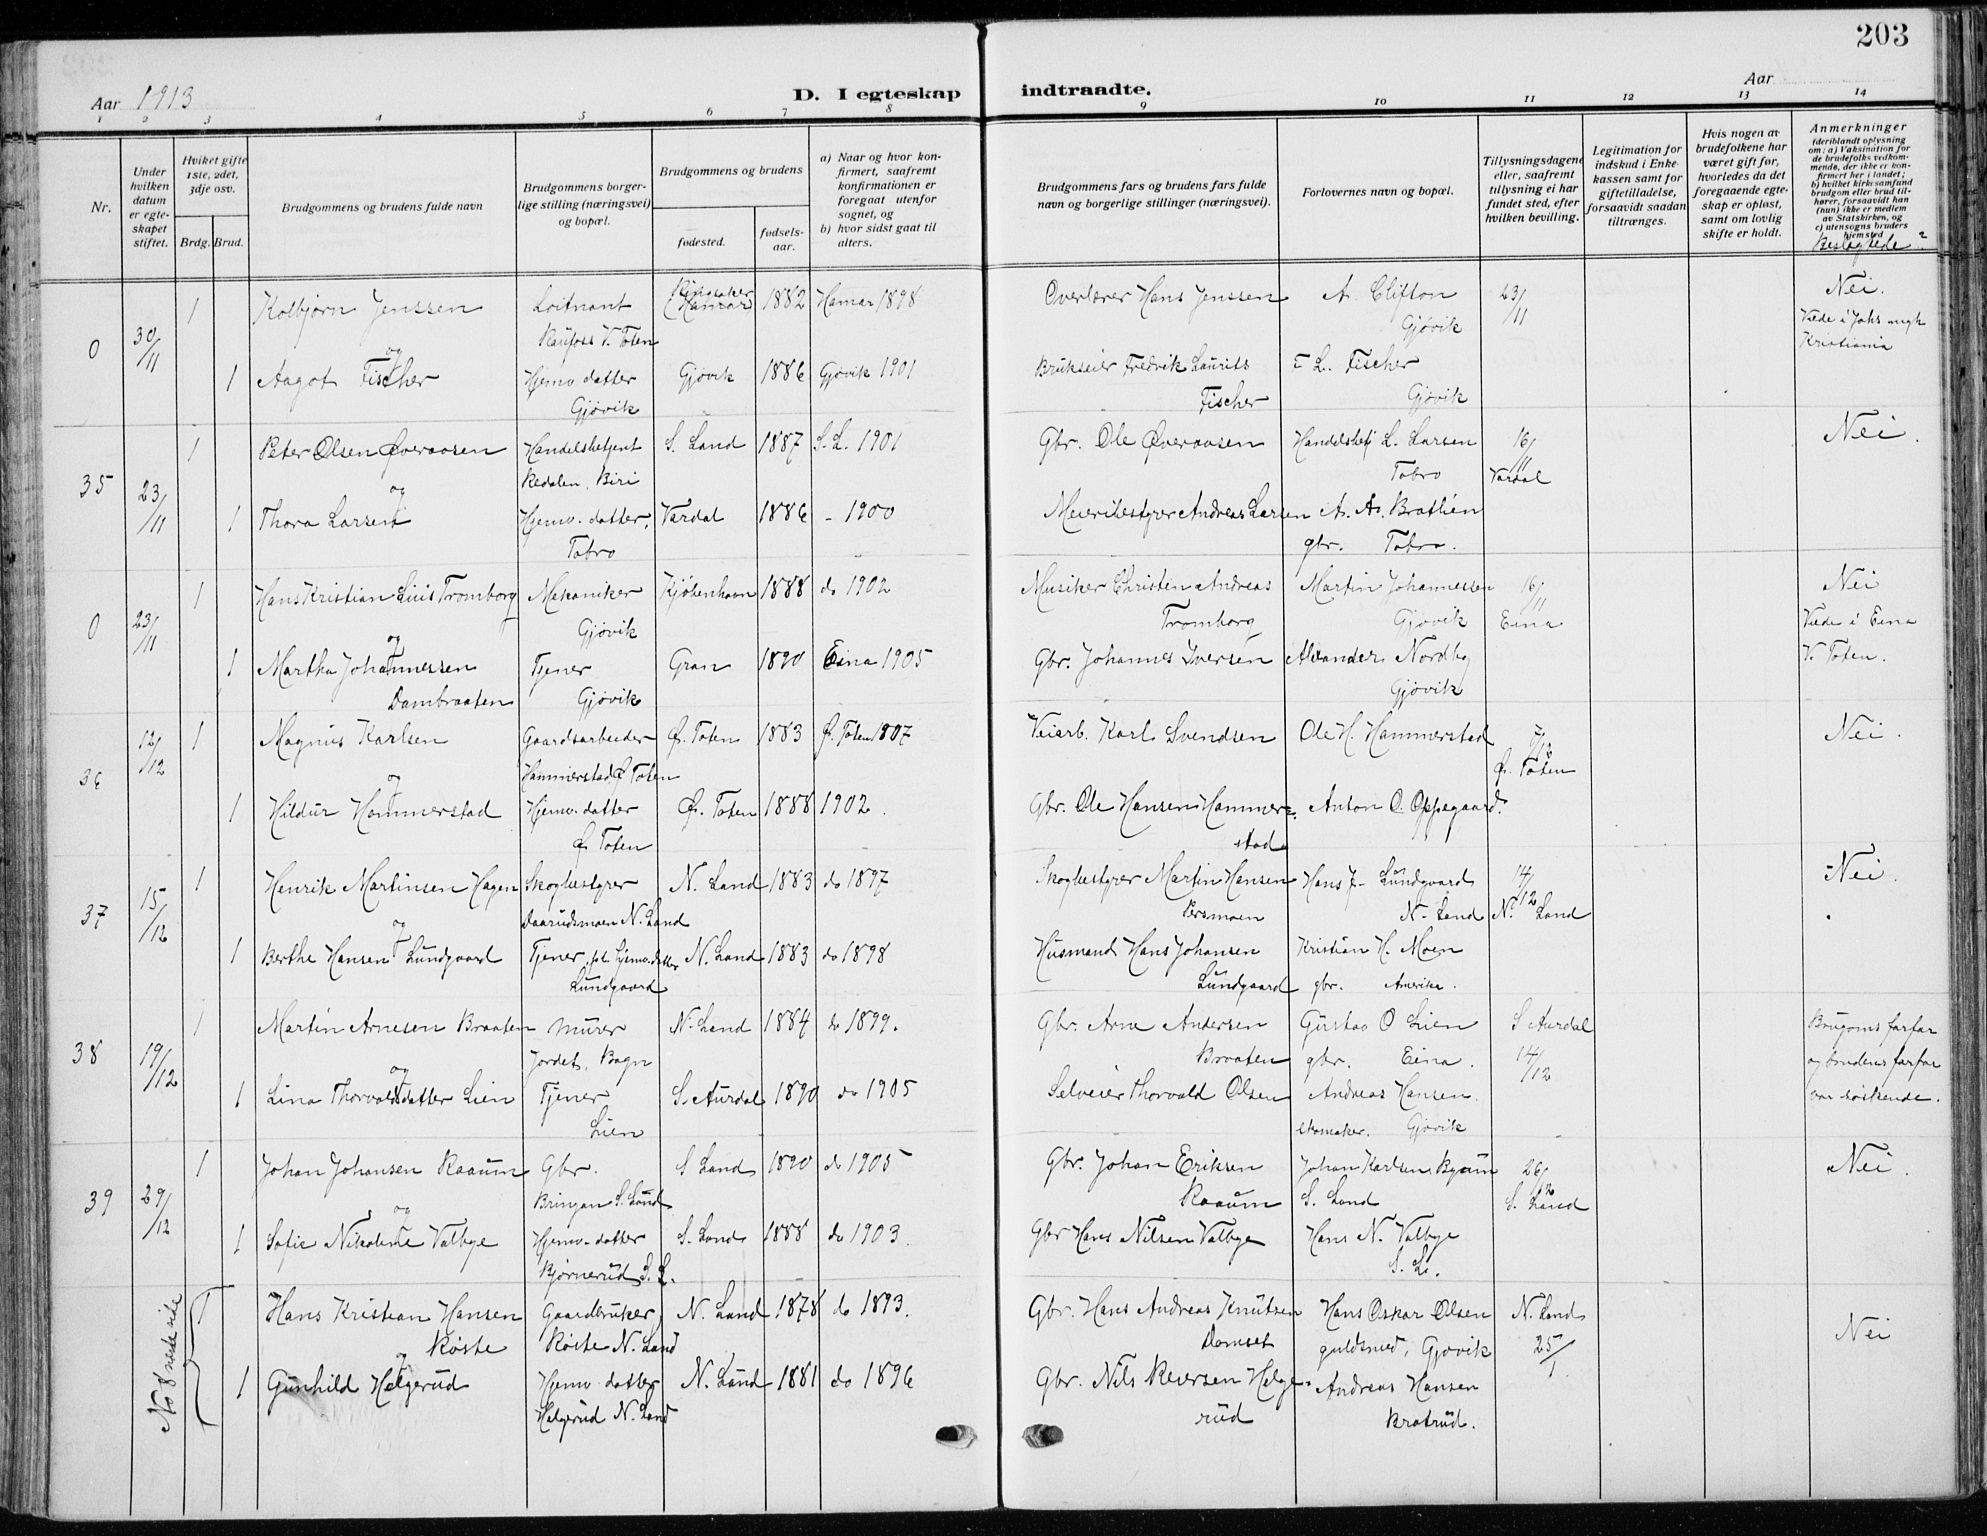 203
Aar 1913
D. I egteskap indtraadte.
Aar
1 2 3 4 5 6 7 8 9 10 11 12 13 14
Nr.
Under hvilken datum er egteskapet stiftet.
Hvilket gifte 1ste, 2det, 3dje osv.
Brdg. Brud.
Brudgommens og brudens fulde navn
Brudgommens borgerlige stilling (næringsvei) og bopæl.
Brudgommens og brudens
fødested.
fødselsaar.
a) Naar og hvor konfirmert, saafremt konfirmationen er foregaat utenfor sognet, og
b) hvor sidst gaat til alters.
Brudgommens fars og brudens fars fulde navn og borgerlige stillinger (næringsvei).
Forlovernes navn og bopæl.
Tillysningsdagene eller, saafremt tillysning ei har fundet sted, efter hvilken bevilling.
Legitimation for indskud i Enkekassen samt for giftetilladelse, forsaavidt saadan tiltrænges.
Hvis nogen av brudefolkene har været gift før, hvorledes da det foregaaende egteskap er opløst, samt om lovlig skifte er holdt.
Anmerkninger (deriblandt oplysning om: a) Vaksination for de brudefolks vedkommende, der ikke er konfirmert her i landet; b) hvilket kirkesamfund brudgom eller brud tilhører, forsaavidt han (hun) ikke er medlem av Statskirken, og c) utensogns bruders hjemsted
Beslægtede?
0 30/11 1 Kolbjørn Jenssen Loitnant Ringsaker (Hamar) 1882 Hamar 1898 Overlærer Hans Jenssen A. Clifton 23/11 Nei.
og Raufoss V. Toten Gjøvik Viede i Johs mgh
Kristiania
1 Aagot Fischer Hjemv datter Gjøvik 1886 Gjøvik 1901 Brukseier Fredrik Laurits F L. Fischer
Gjøvik Fischer Gjøvik
35 23/11 1 Peter Olsen Øveraasen Handelsbetjent S. Land 1887 S. L. 1901 Gbr. Ole Øveraasen Handelsbetj L. Larsen 16/11 Nei.
og Redalen, Biri Tobro Vardal
1 Thora Larsen Hjemv. datter, Vardal 1886 - 1900 Meieribestyrer Andreas Larsen A. As. Brathien
Tobro gbr. Tobro.
0 23/11 1 Hans Kristian Luis Tromborg Mekaniker Kjøbenhavn 1888 do 1902 Musiker Christen Andreas Martin Johannessen 16/11 Nei
og Gjøvik Tromborg Gjøvik Eina Viede i Eina
1 Martha Johannessen Tjener Gran 1890 Eina 1905 Gbr. Johannes Iversen Alexander Nordby V. Toten.
Dambraaten Gjøvik Gjøvik
36 12/12 1 Magnus Karlsen Gaardsarbeider Ø. Toten 1883 Ø. Toten Veiarb. Karl Svendsen Ole H. Hammerstad 7/12 Nei.
og Hammerstad Ø Toten Ø. Toten
1 Hildur Hammerstad Hjemv. datter Ø. Toten 1888 1902. Gbr. Ole Hansen Hammer= Anton O. Oppegaard.
Ø. Toten stad
37 15/12 1 Henrik Martinsen Hagen Skogbestyrer N. Land 1883 do 1897 Skogbestyrer Martin Hansen Hans J. Lundgaard 14/12 Nei.
og Daarudsmoen N. Land Persmoen N. Land N. Land
1 Berthe Hansen Lundgaard Tjener, hjemv. datter N. Land 1883 do 1898 Husmand Hans Johansen Kristian H. Moen
Lundgaard Lundgaard gbr. Amerika.
38 19/12 1 Martin Arnesen Braaten Murer N. Land 1884 do 1899. Gbr. Arne Andersen Gustav O Lien S Aurdal Brugoms farfar
og Jordet, Bagn Braaten gbr. Eina. 14/12 og brudens farfar
1 Lina Thorvaldsdatter Lien Tjener S. Aurdal 1890 do 1905 Selveier Thorvald Olsen Andreas Hansen var søskende.
Lien skomaker. Gjøvik
39 29/12 1 Johan Johansen Raaum Gbr. S Land 1890 do 1905 Gbr. Johan Eriksen Johan Karlsen Byaum 26/12 Nei.
og Bringen S. Land Raaum S. Land S. Land
1 Sofie Nikoline Valbye Hjemv. datter S. Land 1888 do 1903. Gbr Hans Nilsen Valbye Hans N. Valbye
Bjørnerud S. L. S. L.
No 8 næste side 1 Hans Kristian Hansen Gaardbruker, N. Land 1878 do 1893. Gbr. Hans Andreas Knutsen Hans Oskar Olsen N. Land Nei
og Røste Røste N. Land Domset guldsmed, Gjøvik 25/1
1 Gunhild Helgerud Hjemv. datter N. Land 1881 do 1896 Gbr. Nils Reiersen Helge- Andreas Hansen
Helgerud N. Land rud Bratrud.